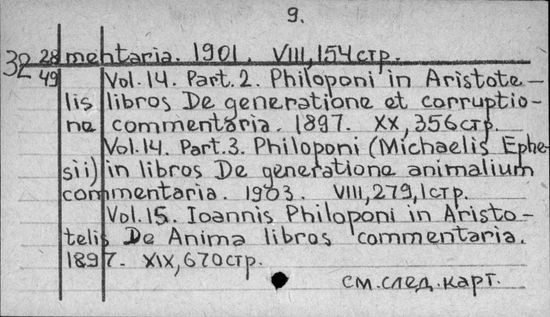 9.
32 28 mentaria. 1901. VIII, 154 стр.
49 Vol. 14. Part. 2. Philoponi in Aristote-
lis libros De generatione et corruptio-
ne commentaria. 1897. XX, 356 стр.
Vol. 14. Part. 3. Philoponi (Michaelis Ephe-
sii) in libros De generatione animalium
commentaria. 1903. VIII, 279, 1 стр.
Vol. 15. Ioannis Philoponi in Aristo-
telis De Anima libros commentaria.
1897. XIX, 670 стр.
см. след. карт.